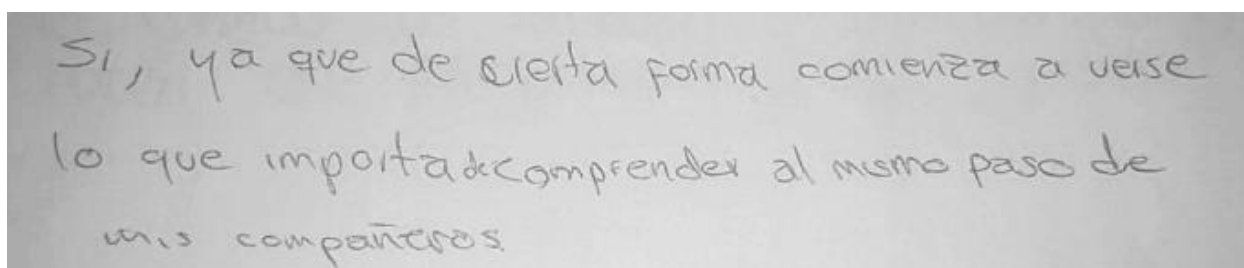 Si, ya que de cierta forma comienza a verse
lo que importa de comprender al mismo paso de
mis compañeros.